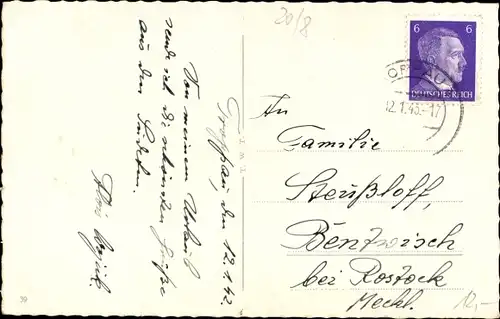 20/8
6 6
DEUTSCHES REICH
12.1.43.-17
Troppau, den 12.1.42.
Von meinem Urlaub
sende ich die schönsten Grüße
aus dem Sudeten.
An
Familie
Steußloff,
Bentwisch
bei Rostock
Meckl.
12,-
39